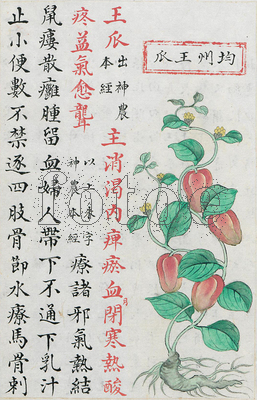 均州王瓜
王瓜出神農本經主消渴內痺瘀血月閉寒熱酸
疼益氣愈聾以上朱字神農本經療諸邪氣熱結
鼠瘻散癰腫留血婦人帶下不通下乳汁
止小便數不禁逐四肢骨節水療馬骨刺